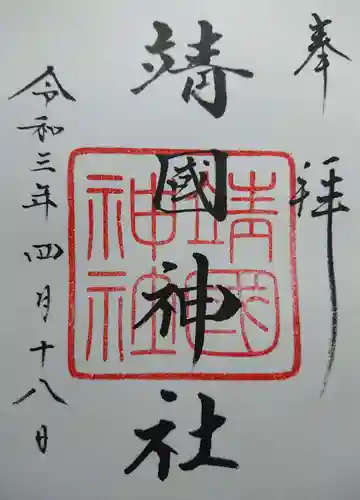 奉拝
靖國神社
靖国神社
令和三年四月十八日